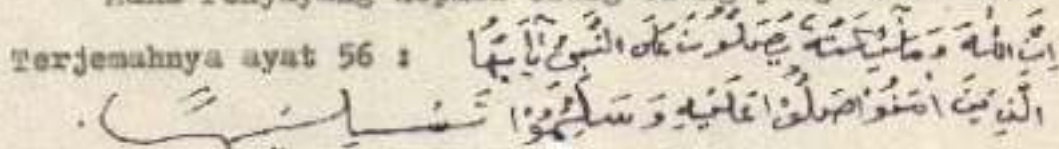 Terjemahnya ayat 56 : اِنَّ اللهَ وَمَلٰٓئِكَتَهُ يُصَلُّوْنَ عَلَى النَّبِيِّ يٰٓاَيُّهَا
الَّذِيْنَ اٰمَنُوْا صَلُّوْا عَلَيْهِ وَسَلِّمُوْا تَسْلِيْمًا .